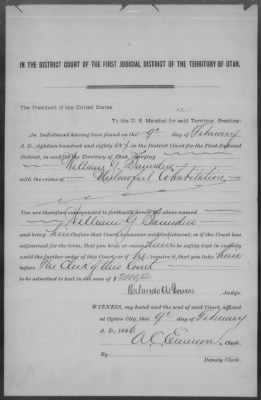 IN THE DISTRICT COURT OF THE FIRST JUDICIAL DISTRICT OF THE TERRITORY OF UTAH.
The President of the United States
To the U. S. Marshal for said Territory, Greeting:
An Indictment having been found on the 9th day of February
A. D., eighteen hundred and eighty six in the District Court for the First Judicial
District, in and for the Territory of Utah, charging
William G. Saunders
with the crime of Unlawful Cohabitation
You are therefore commanded to forthwith arrest the above named
William G. Saunders
and bring him before that Court to answer said indictment; or if the Court has
adjourned for the term, that you keep, or cause him to be safely kept in custody
until the further order of this Court; or if he require it, you take him
before The Clerk of this Court
to be admitted to bail in the sum of $
Orlando W. Powers Judge.
WITNESS, my hand and the seal of said Court, affixed
at Ogden City, this 9th day of February
A. D., 1886
A. C. Emerson, Clerk.
By
Deputy Clerk.